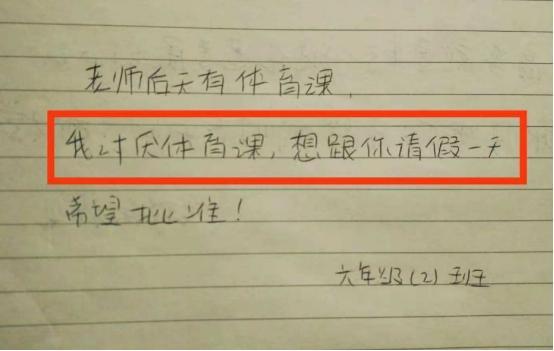 老师后天有体育课,
我讨厌体育课,想跟你请假一天
希望批准!
六年级(2)班